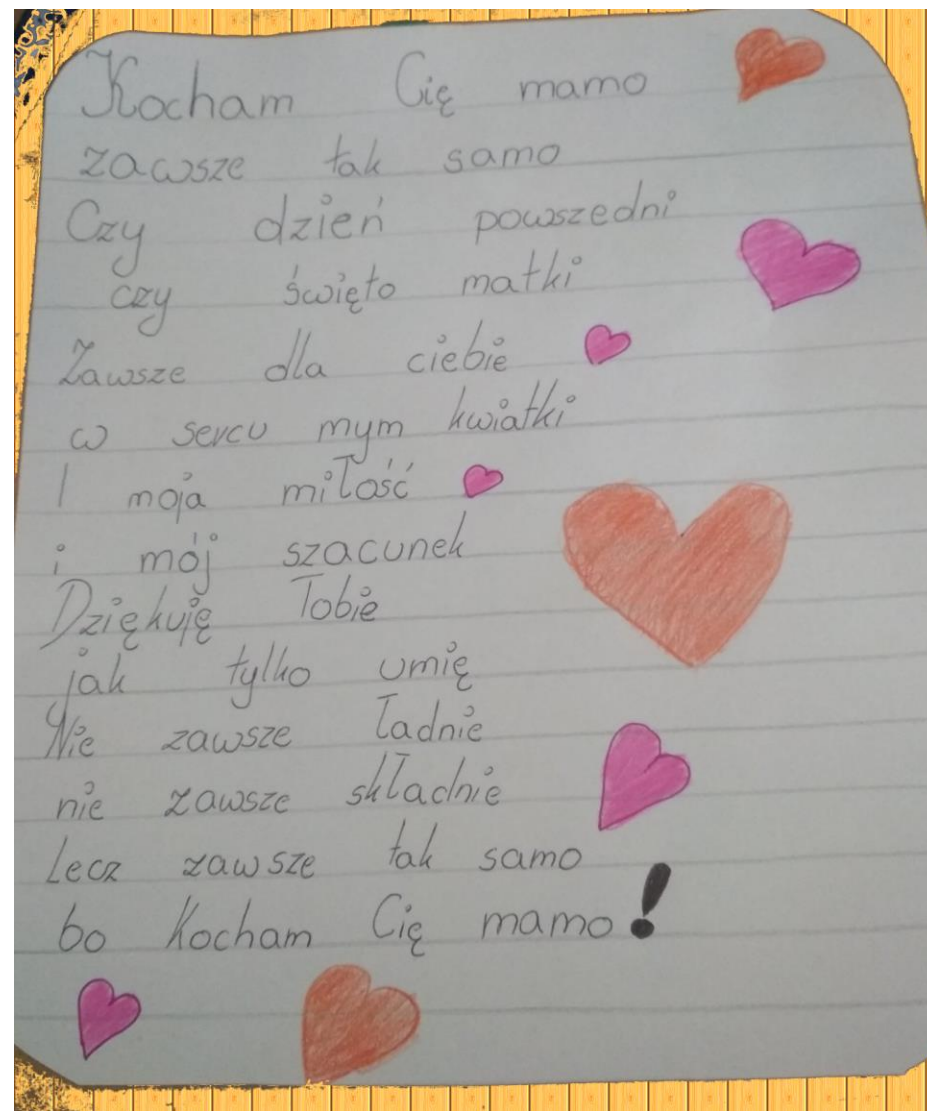 Kocham Cię mamo
zawsze tak samo
Czy dzień powszedni
czy święto matki
Zawsze dla ciebie
w sercu mym kwiatki
I moja miłość
i mój szacunek
Dziękuję Tobie
jak tylko umię
Nie zawsze ładnie
nie zawsze składnie
Lecz zawsze tak samo
bo Kocham Cię mamo!